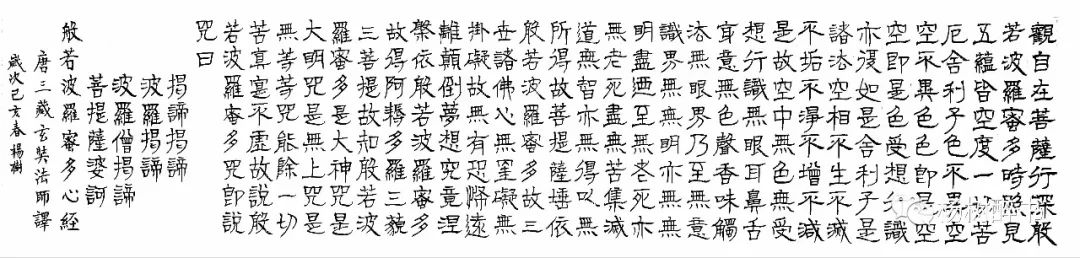 觀自在菩薩行深般
若波羅蜜多時照見
五蘊皆空度一切苦
厄舍利子色不異空
空不異色色即是空
空即是色受想行識
亦復如是舍利子是
諸法空相不生不滅
不垢不淨不增不減
是故空中無色無受
想行識無眼耳鼻舌
身意無色聲香味觸
法無眼界乃至無意
識界無無明亦無無
明盡迺至無老死亦
無老死盡無苦集滅
道無智亦無得以無
所得故菩提薩埵依
般若波羅蜜多故三
世諸佛心無罣礙無
掛礙故無有恐怖遠
離顛倒夢想究竟涅
槃依般若波羅蜜多
故得阿耨多羅三藐
三菩提故知般若波
羅蜜多是大神咒是
大明咒是無上咒是
無等等咒能除一切
苦真實不虛故說般
若波羅蜜多咒即說
咒曰
揭諦揭諦
波羅揭諦
波羅僧揭諦
菩提薩婆訶
般若波羅蜜多心經
唐三藏玄奘法師譯
歲次己亥春楊樹